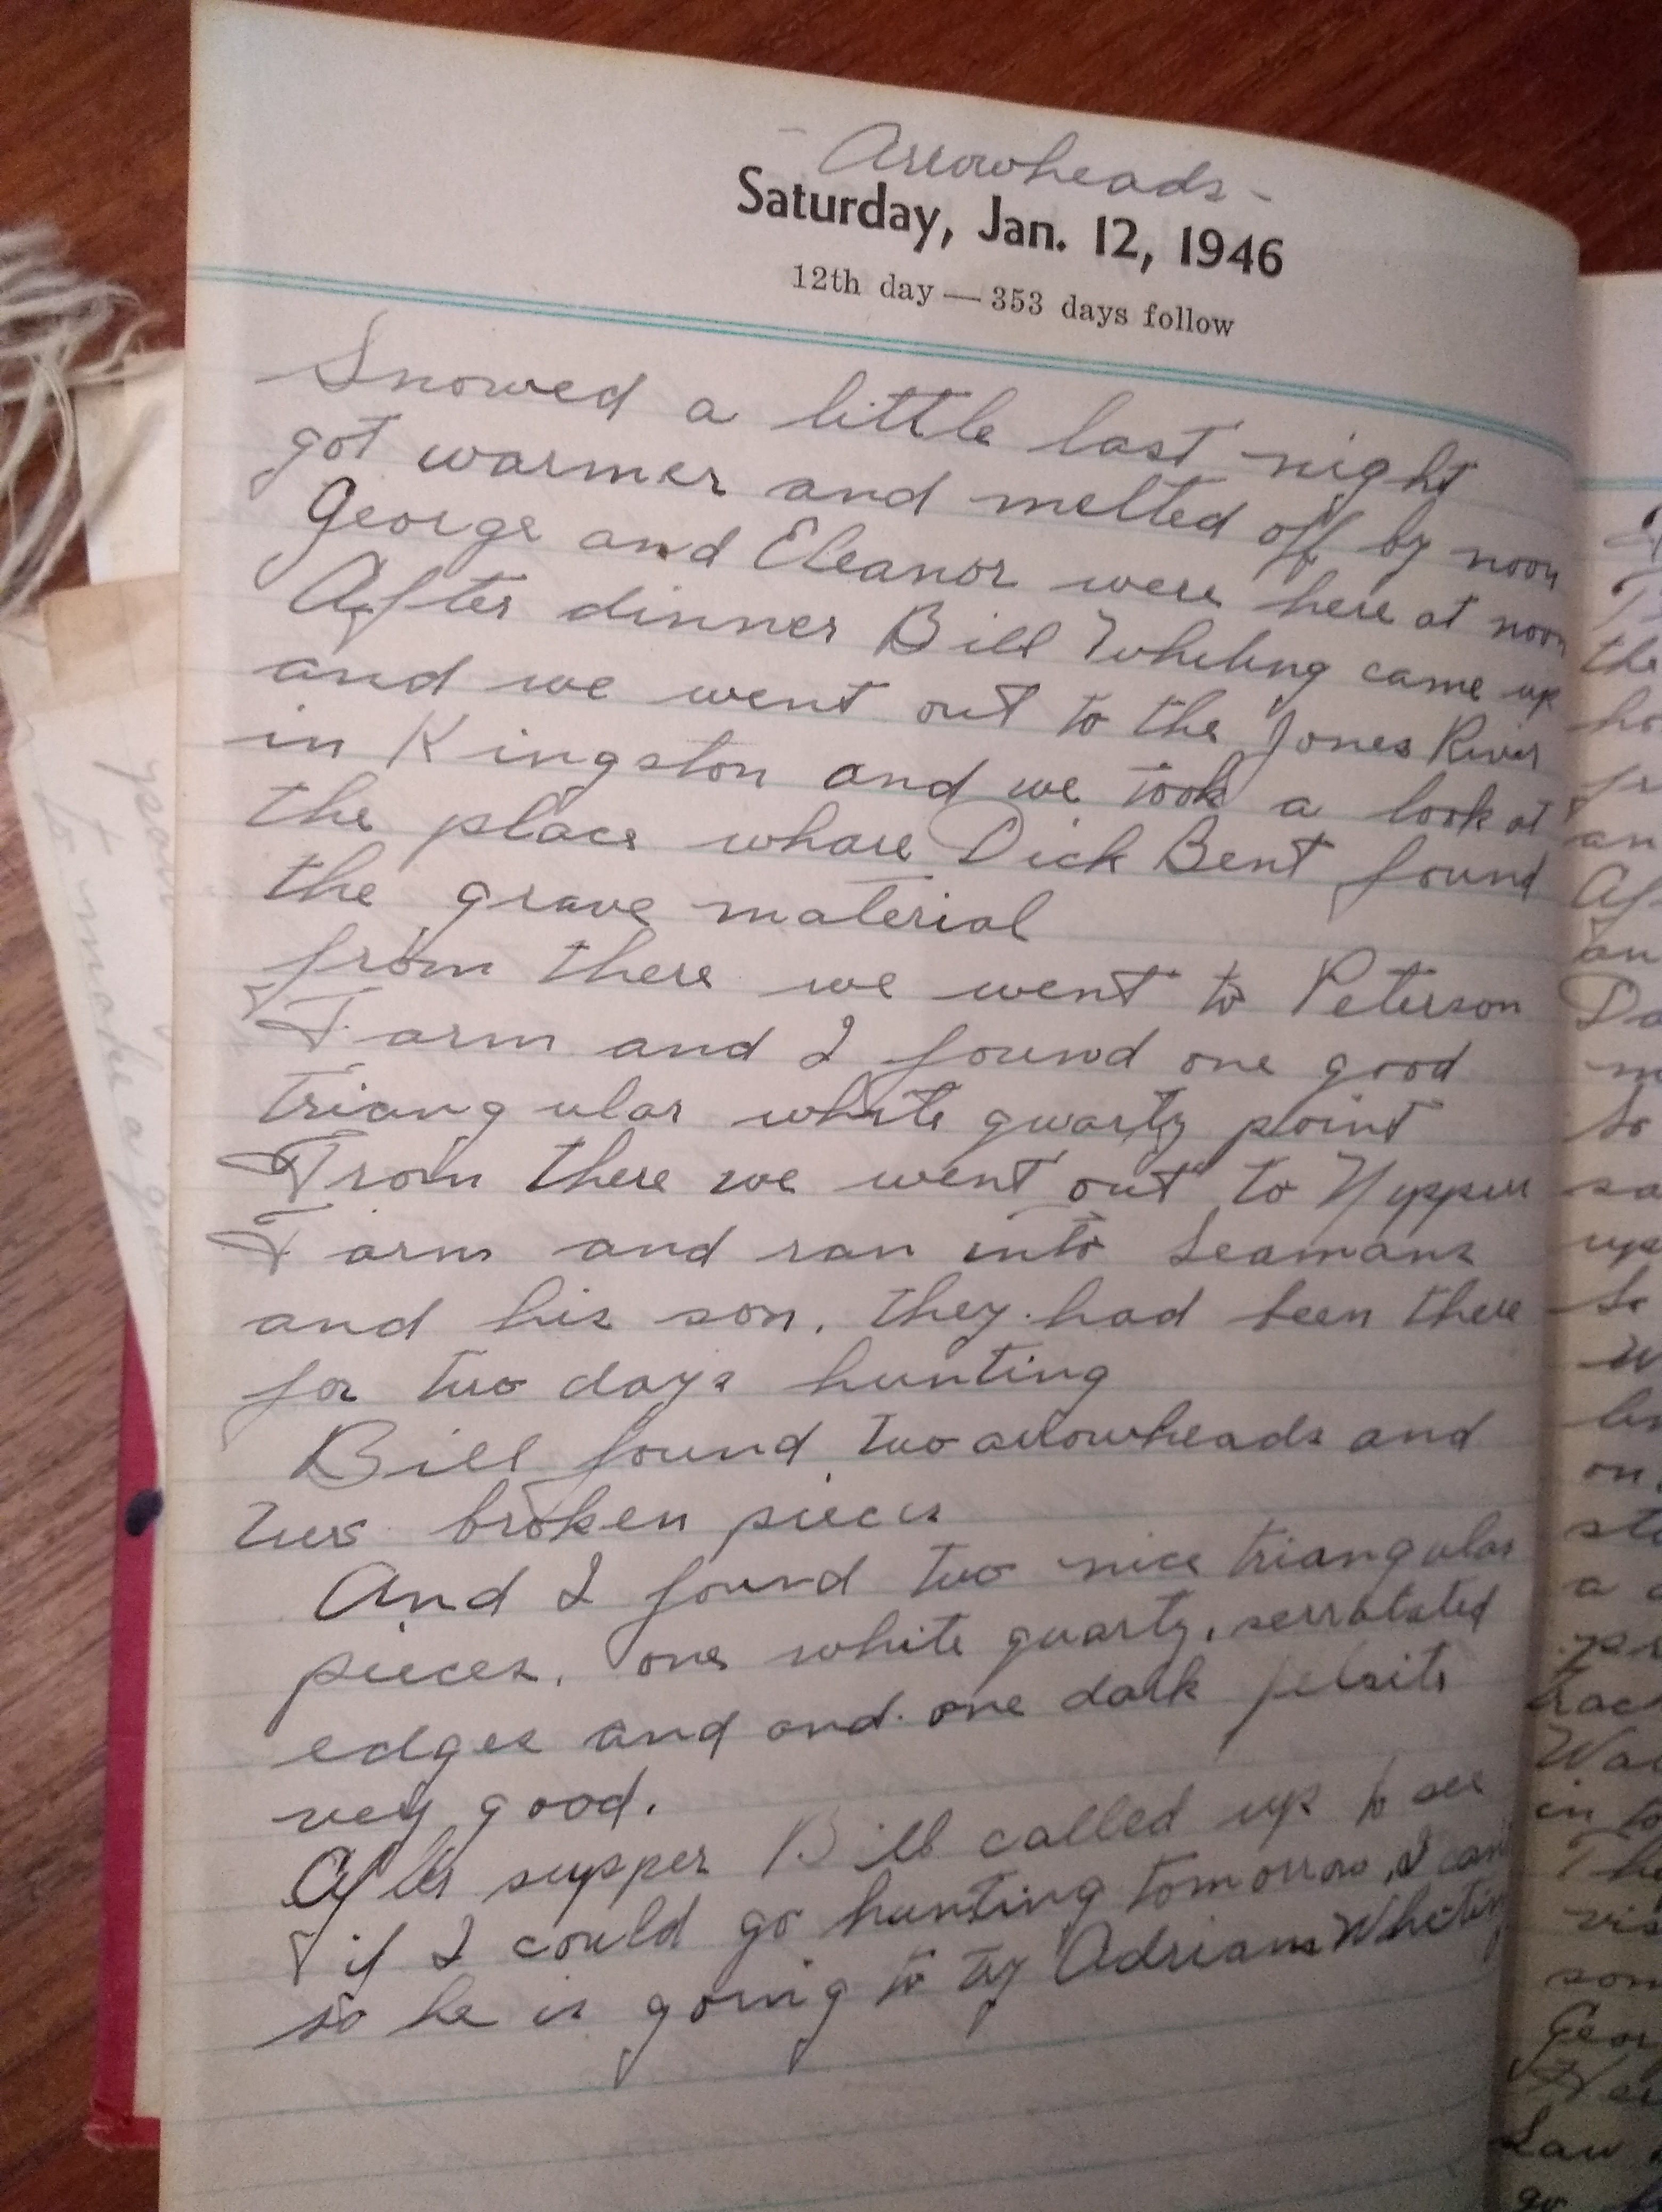 - Arrowheads -
Saturday, Jan. 12, 1946
12th day — 353 days follow
Snowed a little last night
got warmer and melted off by noon
George and Eleanor were here at noon
After dinner Bill Whiting came up
and we went out to the Jones River
in Kingston and we took a look at
the place whare Dick Bent found
the grave material
from there we went to Peterson
Farm and I found one good
triangular white quartz point
From there we went out to
Farm and ran into Seamans
and his son. they had been there
for two days hunting
Bill found two arrowheads and
two broken pieces
And I found two nice triangular
pieces. one white quartz, serrotated
edges and and one dark felsite
very good.
After supper Bill called up to see
if I could go hunting tomorrow, I can't
so he is going to try Adrian Whiting